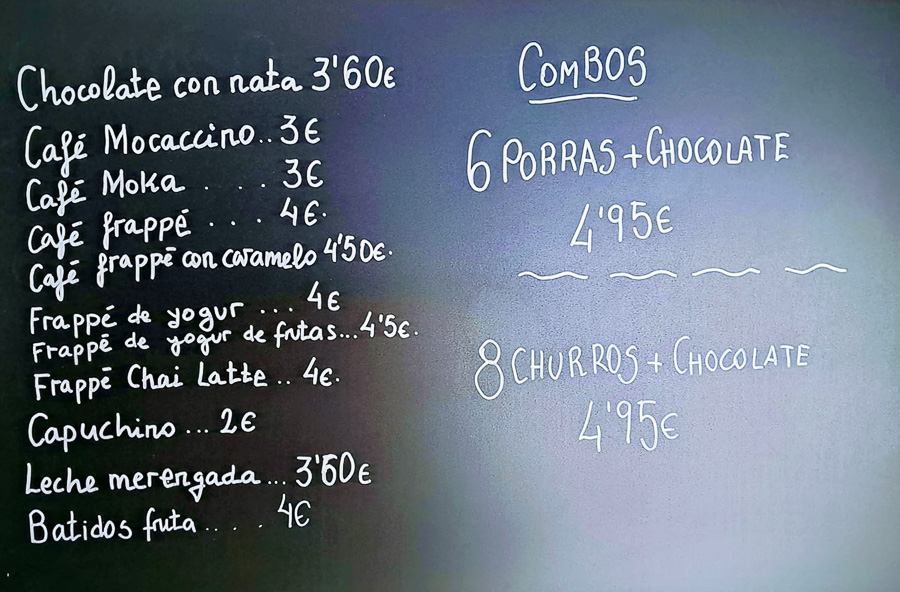 Chocolate con nata 3'60€
Café Mocaccino.. 3€
Café Moka . . . . 3€
Café frappé . . . 4€.
Café frappé con caramelo 4'50€.
Frappé de yogur ... 4€
Frappé de yogur de frutas... 4'5€.
Frappé Chai Latte .. 4€.
Capuchino ... 2€
Leche merengada ... 3'60€
Batidos fruta .. . . 4€
COMBOS
6 PORRAS + CHOCOLATE
4'95€
8 CHURROS + CHOCOLATE
4'95€